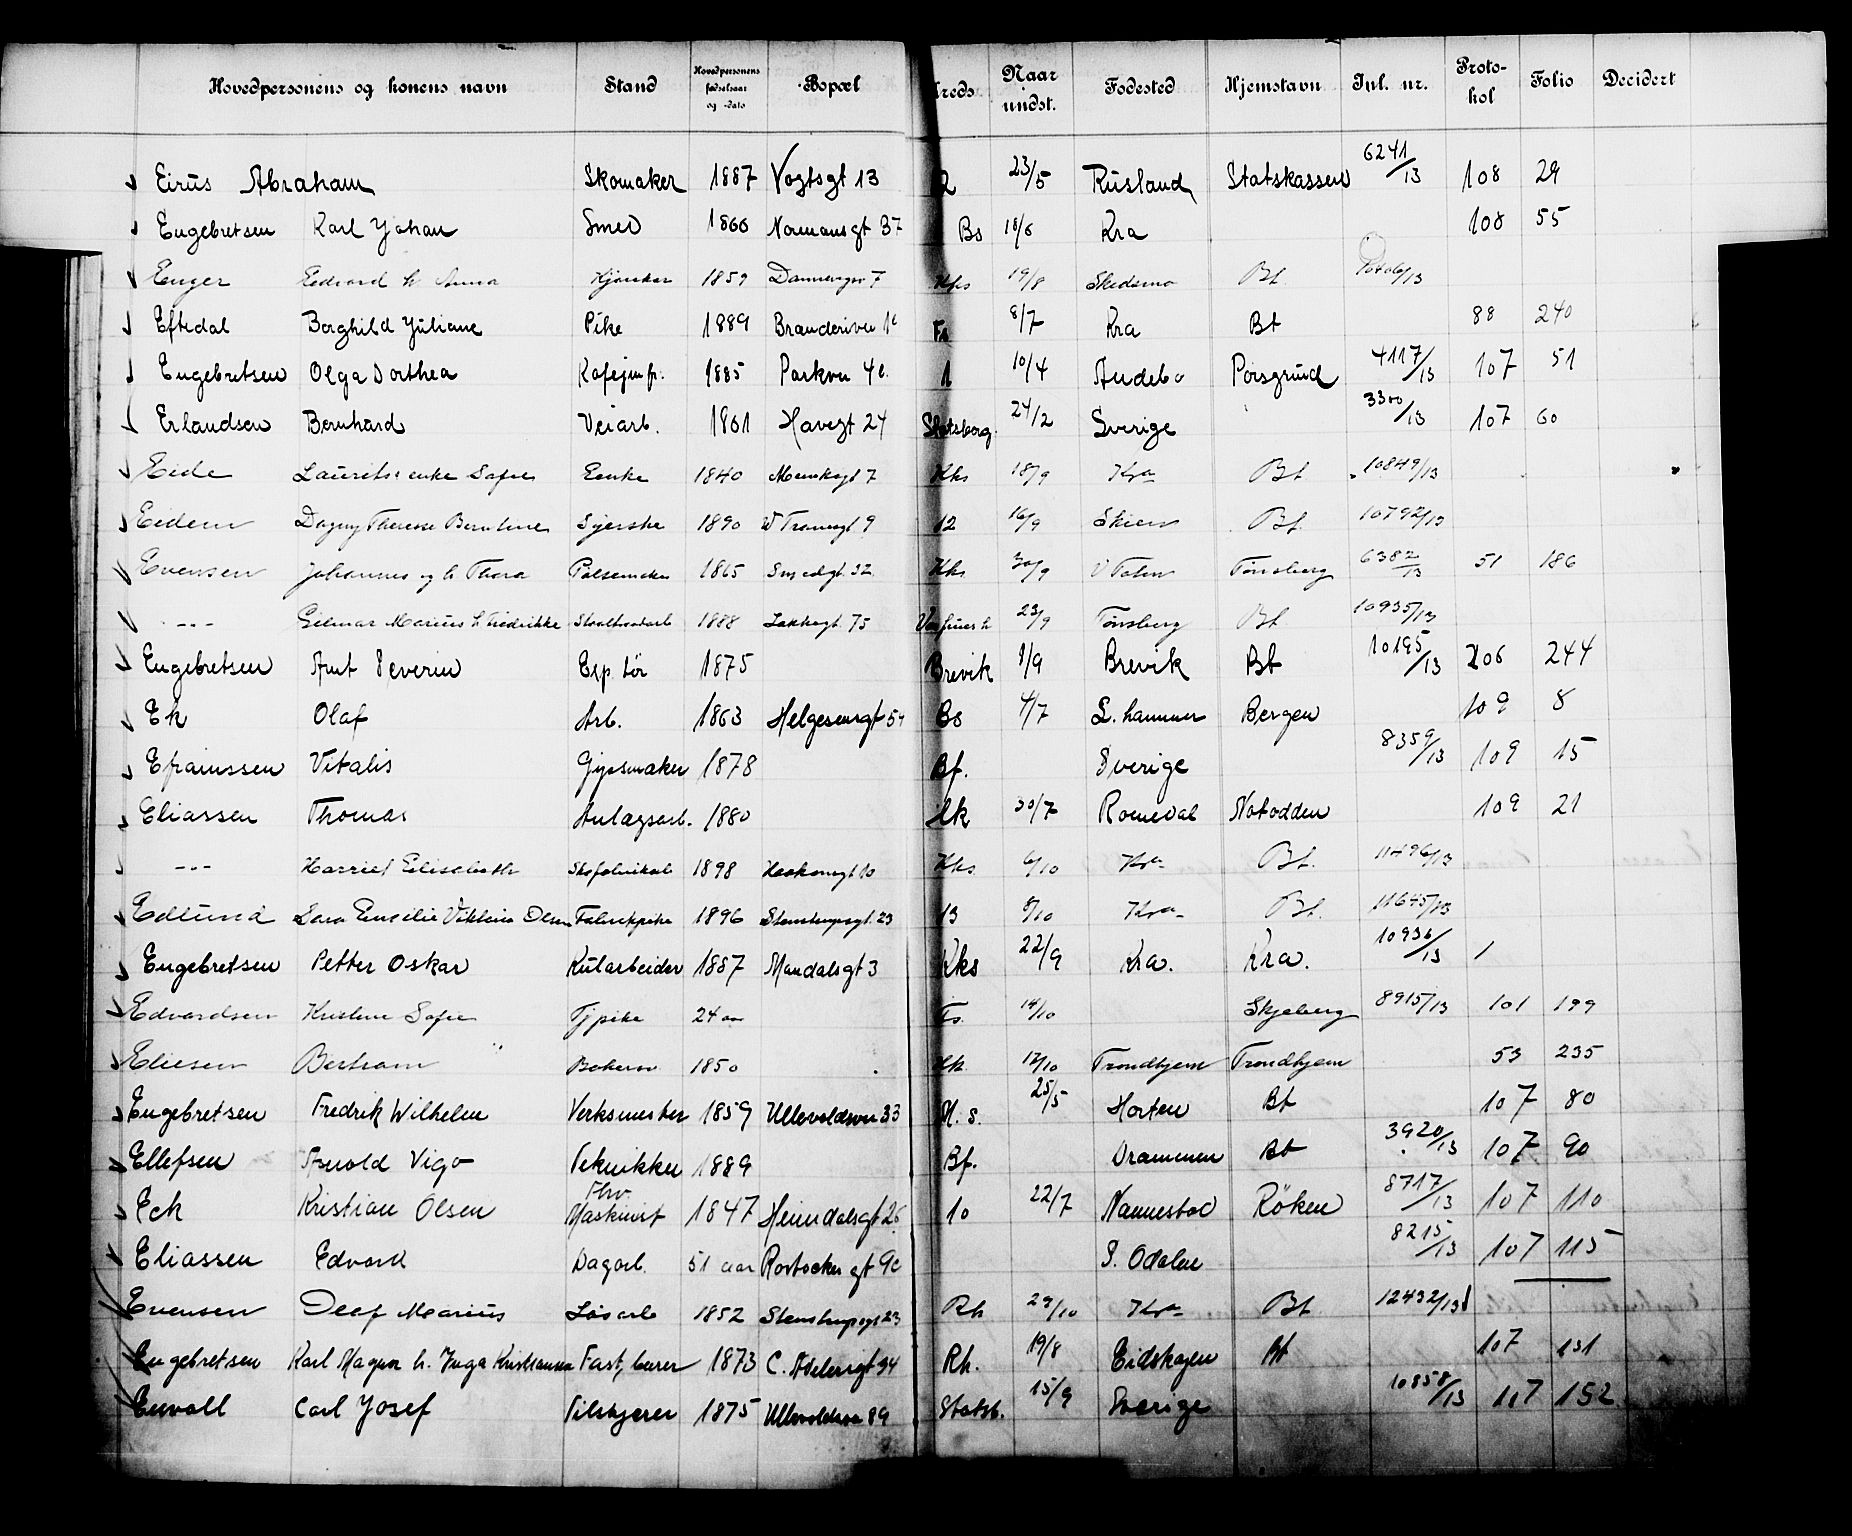 Hovedpersonens og konens navn Stand Hovedpersonens fødselsaar og -dato Bopæl Kreds Naar undst. Fødested Hjemstavn Jnl. nr. Proto-kol Folio Decidert
Eirus Abraham Skomaker 1887 Vogtsgt 13 23/5 Rusland Statskassen 6241/13 108 29
Engebretsen Karl Johan Smed 1866 Normansgt 37 Bs 18/6 Kra 108 55
Enger Edvard h Anna 1859 7 Kks 19/8 Skedsmo Bf
Eftedal Borghild Juliane Pike 1889 8/7 Kra Bt 88 240
Engebretsen Olga Dorthea 1885 Parkvn 4c 1 10/4 Andebo Porsgrund 4117/13 107 51
Erlandsen Bernhard Veiarb. 1861 Havegt 24 24/2 Sverige 3300/13 107 60
Eide Laurits's enke Sofie Enke 1840 Munkegt 7 Kks 18/9 Kra Bt 10849/13
Eidem Dagny Therese Berntine Syerske 1890 9 12 16/9 Skien Bf 10792/13
Evensen Johannes og h Thora Pølsemaker 1865 Smedgt. 32 Kks 30/9 Tønsberg 6382/13 51 186
--- Marius h Fredrikke 1888 Lakkegt 75 23/9 Tønsberg Bf 10935/13
Engebretsen Amt Severin Exp tør 1875 Brevik 1/9 Brevik Bt 10195/13 106 244
Ek Olaf Arb. 1863 Helgesensgt Bs 4/7 L. hammer Bergen 109 8
Efraimssen Vitalis Gipsmaker 1878 Bf. Sverige 8359/13 109 15
Eliassen Thomas Anlægsarb. 1880 30/7 Romedal Notodden 109 21
--- Harriet Elisabeth 1898 Haakonsgt 10 Kks 6/10 Kra Bt. 11496/13
Edlund Sara Emilie Viktoria Olsen Fabrikpike 1896 Stenstrupsgt. 23 13 8/10 Kra Bt. 11645/13
Engebretsen Petter Oskar Kularbeider 1887 Mandalsgt 3 Kks 22/9 Kra. Kra. 10936/13 1
Edvardsen Kristine Sofie Tjpike 24 aar Fs. 14/10 Skjeberg 8915/13 101 199
Eliesen Bertram 1850 17/10 Trondhjem Trondhjem 53 235
Engebretsen Fredrik Wilhelm Verksmester 1859 Ullevoldsvn 33 25/5 Horten Bt 107 80
Ellefsen Arnold Vigo Tekniker 1889 Bf. Drammen Bt 3920/13 107 90
Eck Kristian Olsen Fhv. Maskinist 1847 Heimdalsgt 26 10 22/7 Nannestad Røken 8717/13 107 110
Eliassen Edvard Dagarb. 51 aar Rostocker gt 9c S. Odalen 8215/13 107 115
Evensen Olaf Marius Løsarb 1852 Stenstrupsgt 23 Rh 29/10 Kra Bt 12432/13
Engebretsen Karl Magnus h. Inga Kristianna 1873 C. Adelersgt 34 Rh. 19/8 Eidskogen Bt 107 131
Envall Carl Josef Pilskjærer 1875 Ullevoldsvn 89 Statsb. 15/9 Sverige 10858/13 107 152